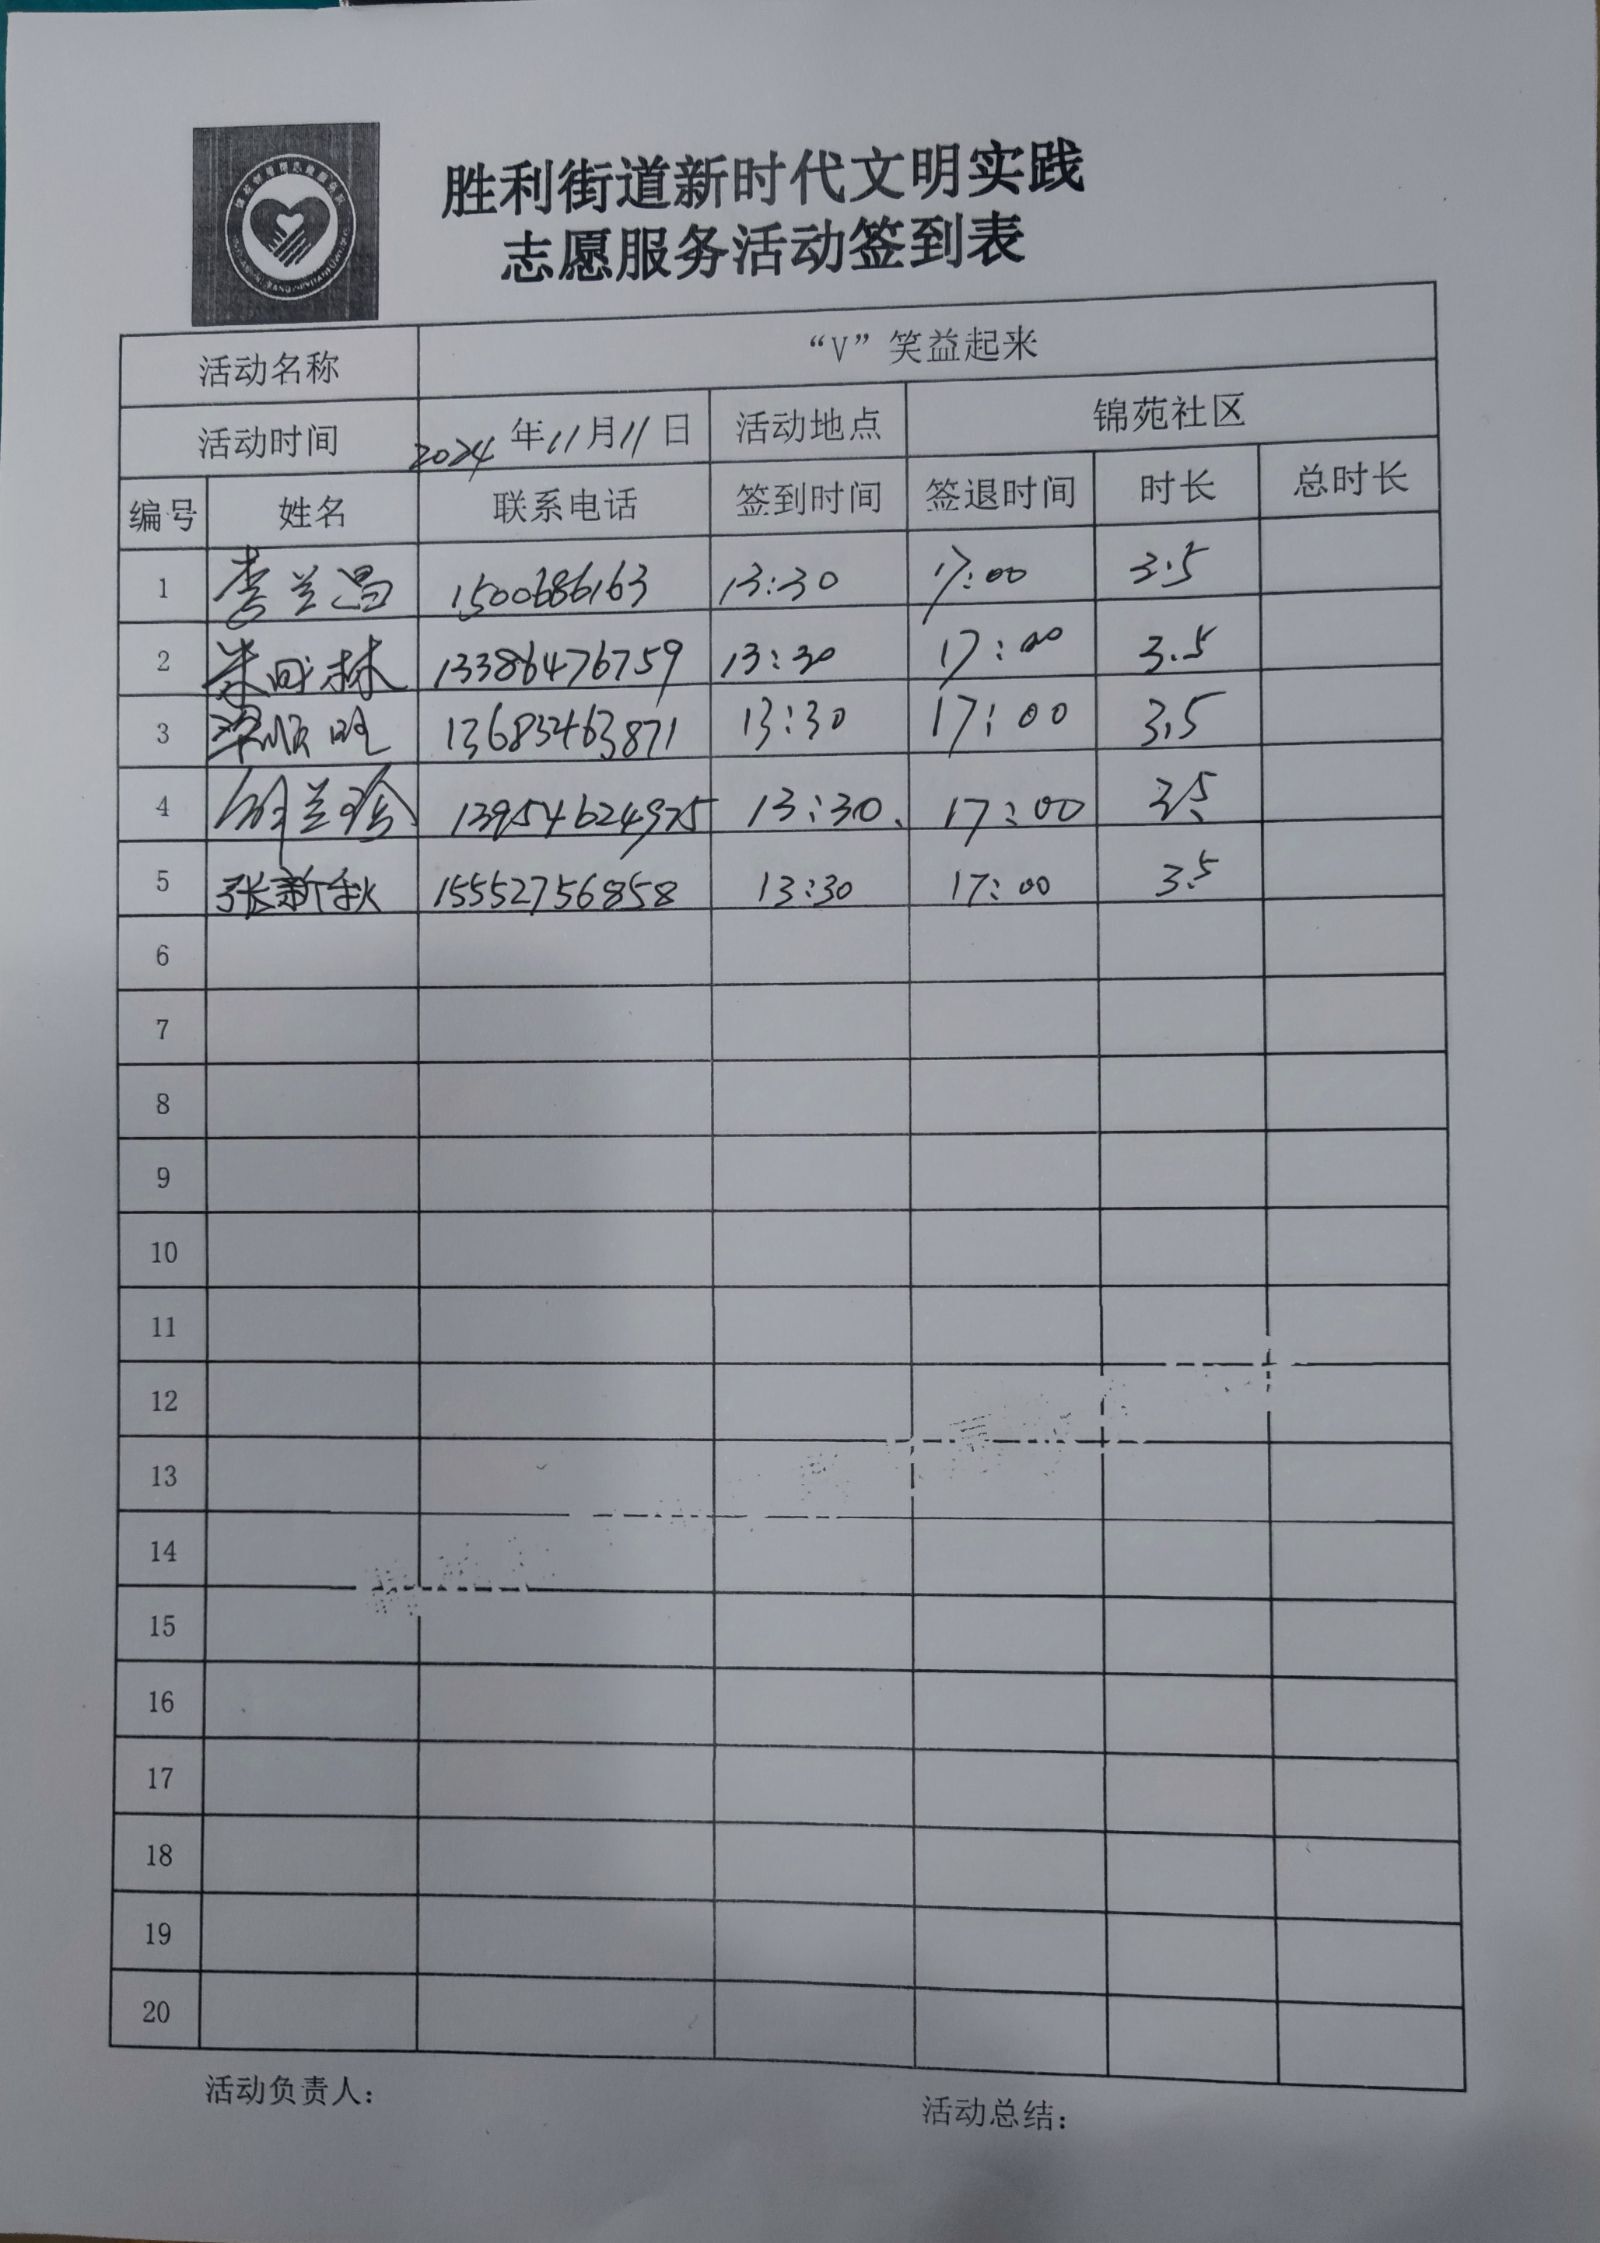 胜利街道新时代文明实践
志愿服务活动签到表
活动名称 “V”笑益起来
活动时间 2024年11月11日 活动地点 锦苑社区
编号 姓名 联系电话 签到时间 签退时间 时长 总时长
1 李兰昌 1500686163 13:30 17:00 3.5
2 林 13386476759 13:30 17:00 3.5
3 梁顺旺 13683463871 13:30 17:00 3.5
4 兰珍 13954624975 13:30 17:00 3.5
5 张新秋 15552756858 13:30 17:00 3.5
6
7
8
9
10
11
12
13
14
15
16
17
18
19
20
活动负责人: 活动总结: